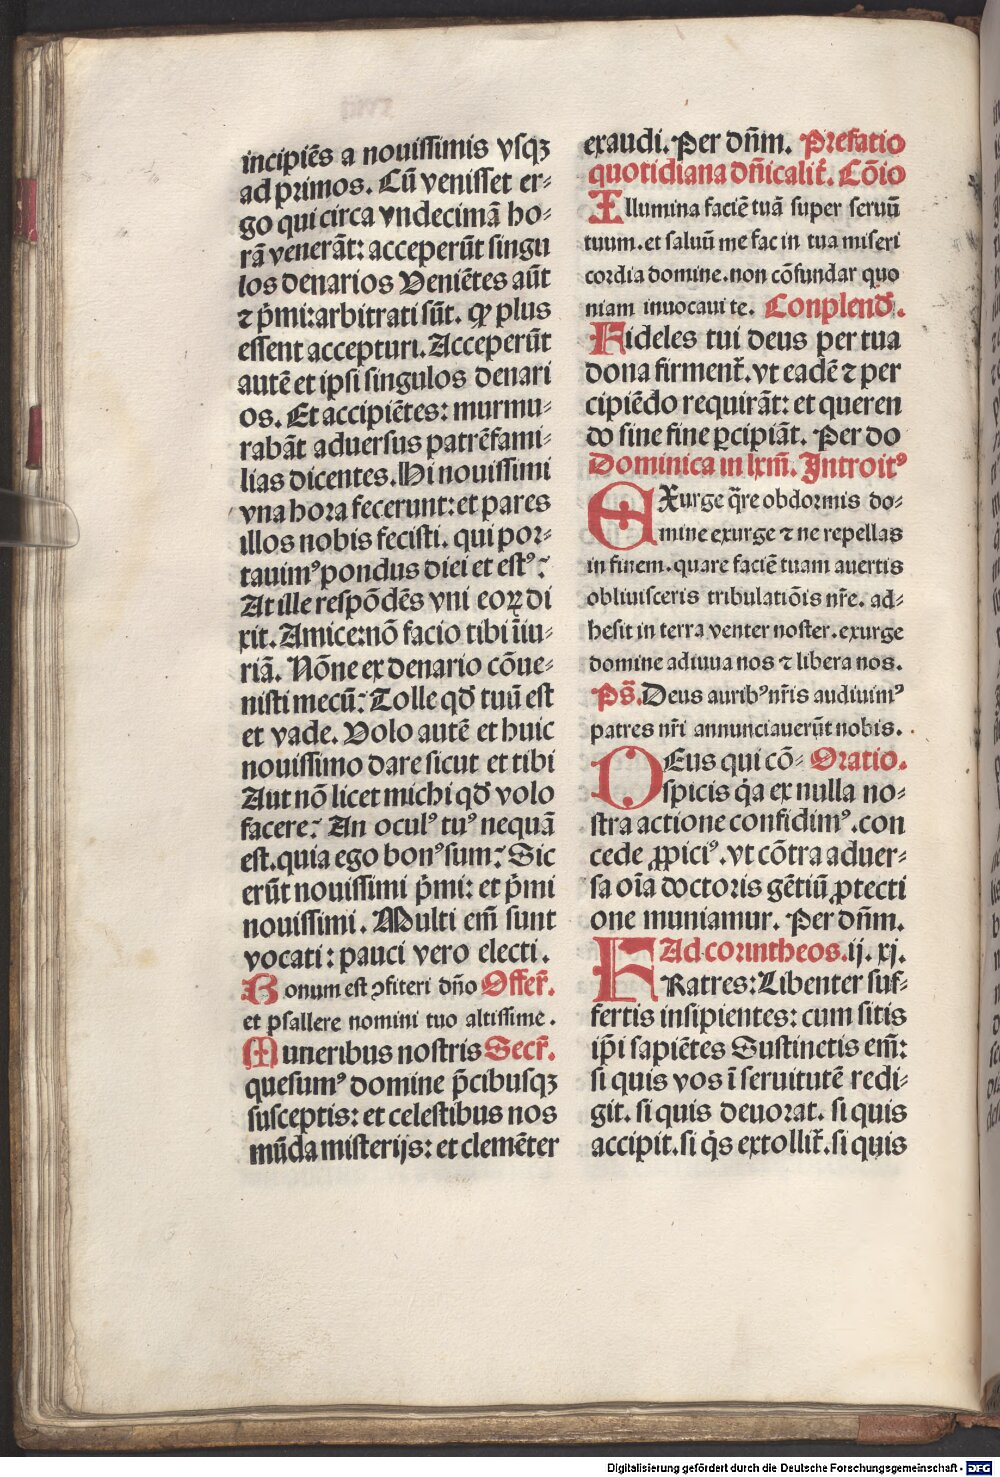 incipiēs a nouissimis vsqꝫ
ad primos. Cū venisset er⸗
go qui circa vndecimā ho⸗
rā venerāt: acceperūt singu
los denarios Veniētes aūt
⁊ p̄mi: arbitrati sūt. ꝙ plus
essent accepturi. Acceperūt
autē et ipsi singulos denari
os. Et accipiētes: murmu⸗
rabāt aduersus patrēfami⸗
lias dicentes. Hi nouissimi
vna hora fecerunt: et pares
illos nobis fecisti. qui por⸗
tauimꝰ pondus diei et estꝰ?
At ille respōdēs vni eoꝝ di
xit. Amice: nō facio tibi īiu⸗
riā. Nōne ex denario cōue⸗
nisti mecū? Tolle qđ tuū est
et vade. Volo autē et huic
nouissimo dare sicut et tibi
Aut nō licet michi qđ volo
facere? An oculꝰ tuꝰ nequā
est. quia ego bonꝰ sum? Sic
erūt nouissimi p̄mi: et p̄mi
nouissimi. Multi em̄ sunt
vocati: pauci vero electi.
Bonum est ꝯfiteri dn̄o Offer̄.
et psallere nomini tuo altissime.
Muneribus nostris Secr̄.
quesumꝰ domine p̄cibusqꝫ
susceptis: et celestibus nos
mūda misterijs: et clemēter
exaudi. Per dn̄m. Prefatio
quotidiana dn̄icalit̄. Cōio
Illumina faciē tuā super seruū
tuum. et saluū me fac in tua miseri
cordia domine. non cōfundar quo
niam inuocaui te. Conplend̄.
Fideles tui deus per tua
dona firment̄. vt eadē ⁊ per
cipiēdo requirāt: et queren
do sine fine ꝑcipiāt. Per do
Dominica in lxm̄. Introitꝰ
EXurge q̄re obdormis do⸗
mine exurge ⁊ ne repellas
in finem. quare faciē tuam auertis
obliuisceris tribulatiōis nr̄e. ad⸗
hesit in terra venter noster. exurge
domine adiuua nos ⁊ libera nos.
Ps̄. Deus auribꝰ nr̄is audiuimꝰ
patres nr̄i annunciauerūt nobis.
DEus qui cō⸗ Oratio.
spicis q̄a ex nulla no⸗
stra actione confidimꝰ. con
cede ꝓpiciꝰ. vt cōtra aduer⸗
sa oīa doctoris gētiū ꝓtecti
one muniamur. Per dn̄m.
Ad corintheos. ij. xj.
FRatres: Libenter suf⸗
fertis insipientes: cum sitis
ip̄i sapiētes Sustinetis em̄:
si quis vos ī seruitutē redi⸗
git. si quis deuorat. si quis
accipit. si q̄s extollit̄. si quis
Digitalisierung gefördert durch die Deutsche Forschungsgemeinschaft - DFG